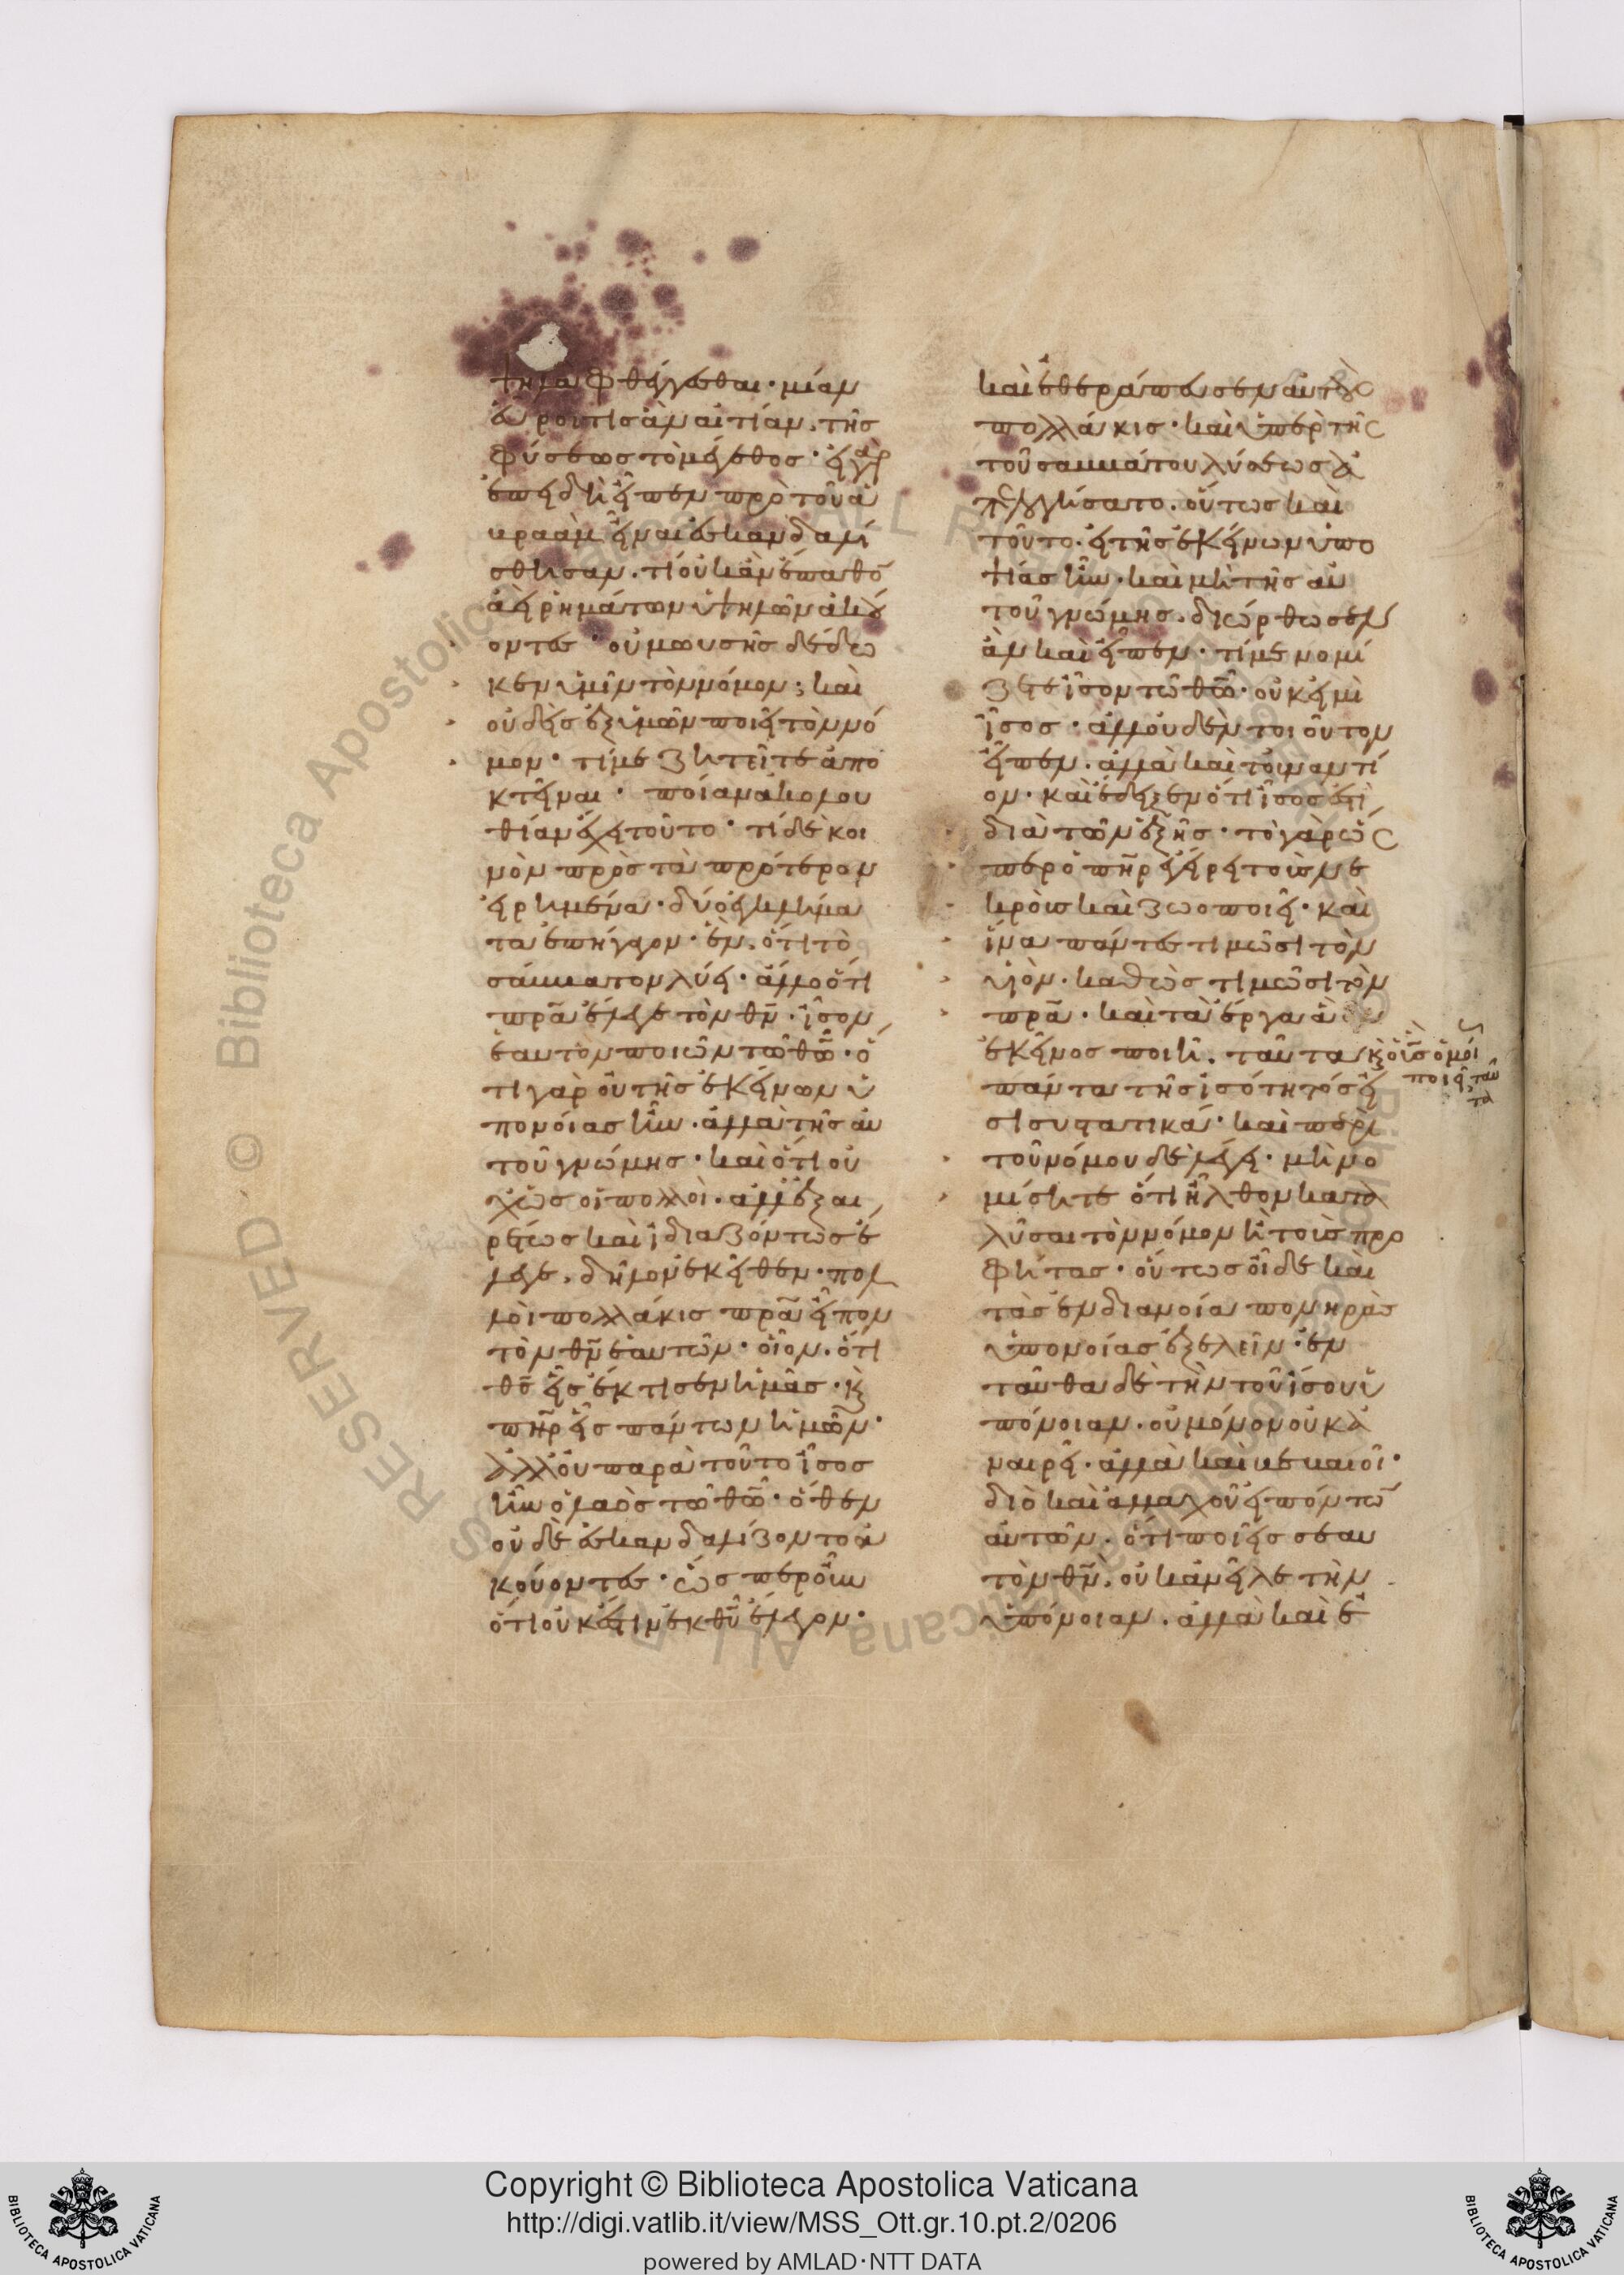 ψηλα φθέγγεσθαι· μίαν
ἀκροατῖς ἂν αἰτίαν. τῆς
φύσεως τὸ μέγεθος· εἰ γὰρ
ἐπειδὴ εἶπεν πρὸ τοῦ ἀ
βραὰμ εἶναι ἐσκανδαλί
σθησαν. τί οὐκ ἂν ἔπαθον
ἀεὶ ῥημάτων ὑψηλῶν ἀκού
οντες· οὐ μωυσῆς δέδω
κεν ὑμῖν τὸν νόμον; καὶ
οὐδεὶς ἐξ ὑμῶν ποιεῖ τὸν νό
μον· τί με ζητεῖτε ἀπο
κτεῖναι· ποίαν ἀκολου
θίαν ἔχει τοῦτο· τί δὲ κοι
νὸν πρὸς τὰ πρότερον
εἰρημένα· δύο ἐγκλήμα
τα ἐπήγαγον· ἓν. ὅτι τὸ
σάββατον λύει· ἄλλο ὅτι
πρα ἔλεγε τὸν θν. ἴσον
ἑαυτὸν ποιῶν τῷ θω· ὅ
τι γὰρ οὐ τῆς ἐκείνων ὑ
πονοίας ἦν. ἀλλὰ τῆς αὐ
τοῦ γνώμης· καὶ ὅτι οὐ
χ ὡς οἱ πολλοὶ. ἀλλ' ἐξαι
ρέτως καὶ ἰδιαζόντως ἔ
λεγε. δῆλον ἐκεῖθεν· πολ
λοὶ πολλάκις πρα εἶπον
τὸν θν ἑαυτῶν· οἷον. ὅτι
θς εἷς ἔκτισεν ἡμᾶς· κ
πηρ εἷς πάντων ἡμῶν·
ἀλλ' οὐ παρὰ τοῦτο ἴσος
ἦν ὁ λαὸς τῷ θω· ὅθεν
οὐδὲ ἐσκανδαλίζοντο ἀ
κούοντες· ὥσπερ οὖν
ὅτι οὐκ ἔστιν ἐκ θυ ἔλεγον·
καὶ ἐθεράπευσεν αὐτοὺς
πολλάκις· καὶ ὑπὲρ τῆς
τοῦ σαββάτου λύσεως ἀ
πελογήσατο. οὕτως καὶ
τοῦτο. εἰ τῆς ἐκείνων ὑπο
ψίας ἦν. καὶ μὴ τῆς αὐ
τοῦ γνώμης. διώρθωσεν
ἂν καὶ εἶπεν· τί με νομί
ζετε ἴσον τῷ θω· οὐκ εἰμὶ
ἴσος· ἀλλ' οὐδὲν τοιοῦτον
εἶπεν. ἀλλὰ καὶ τοὐναντί
ον. καὶ ἔδειξεν ὅτι ἴσος ἐστὶ
διὰ τῶν ἑξῆς· τὸ γὰρ ὥς
περ ὁ πηρ ἐγείρει τοὺς νε
κροὺς καὶ ζωοποιεῖ· καὶ
ἵνα πάντες τιμῶσι τὸν
υἱὸν. καθὼς τιμῶσι τὸν
πρα· καὶ τὰ ἔργα ἃ
ἐκεῖνος ποιῆ. ταῦτα κ ὁ υς ὁμοί
ποιεῖ ταῦ
τα
πάντα τῆς ἰσότητός εἰ
σι συστατικά· καὶ περὶ
τοῦ νόμου δὲ λέγει· μὴ νο
μίσητε ὅτι ἦλθον κατα
λῦσαι τὸν νόμον ἢ τοὺς προ
φήτας· οὕτως οἶδε καὶ
τὰς ἐν διανοία πονηρὰς
ὑπονοίας ἐξελεῖν· ἐν
ταῦθα δὲ τὴν τοῦ ἴσου ὑ
πόνοιαν. οὐ μόνον οὐκ ἀ
ναιρεῖ. ἀλλὰ καὶ βεβαιοῖ·
διὸ καὶ ἀλλαχοῦ εἰπόντων
αὐτῶν. ὅτι ποιεῖς σεαυ
τὸν θν. οὐκ ἀνεῖλε τὴν
ὑπόνοιαν. ἀλλὰ καὶ ἐ
Copyright © Biblioteca Apostolica Vaticana
http://digi.vatlib.it/view/MSS_Ott.gr.10.pt.2/0206
powered by AMLAD·NTT DATA